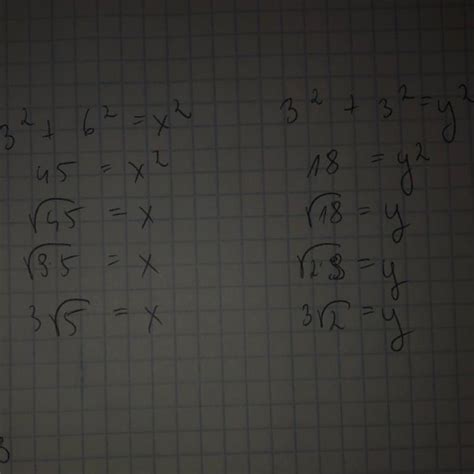 3² + 6² = x²
45 = x²
√45 = x
√9·5 = x
3√5 = x
3² + 3² = y²
18 = y²
√18 = y
√2·9 = y
3√2 = y
3